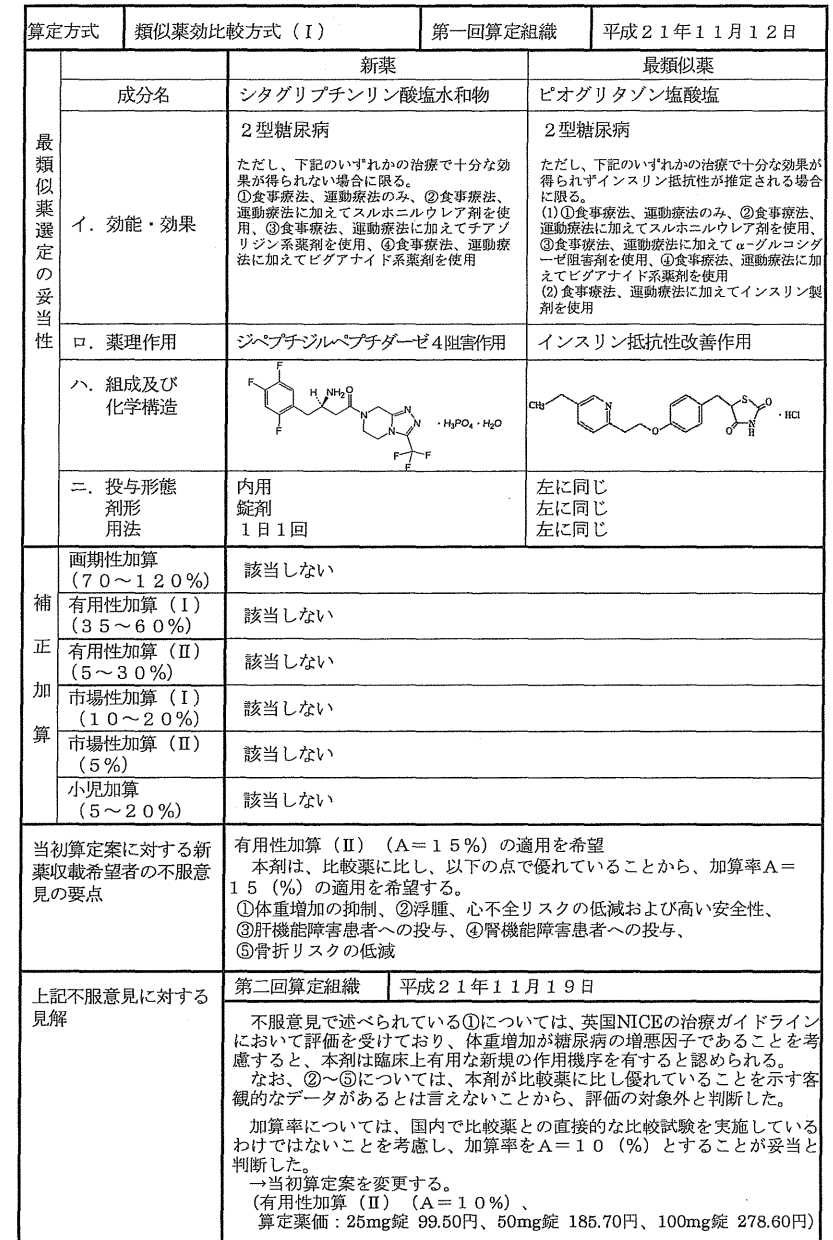 算定方式 類似薬効比較方式（Ⅰ） 第一回算定組織 平成２１年１１月１２日
最類似薬選定の妥当性
新薬 最類似薬
成分名 シタグリプチンリン酸塩水和物 ピオグリタゾン塩酸塩
イ．効能・効果
２型糖尿病
ただし、下記のいずれかの治療で十分な効
果が得られない場合に限る。
①食事療法、運動療法のみ、②食事療法、
運動療法に加えてスルホニルウレア剤を使
用、③食事療法、運動療法に加えてチアゾ
リジン系薬剤を使用、④食事療法、運動療
法に加えてビグアナイド系薬剤を使用
２型糖尿病
ただし、下記のいずれかの治療で十分な効果が
得られずインスリン抵抗性が推定される場合
に限る。
(1)①食事療法、運動療法のみ、②食事療法、
運動療法に加えてスルホニルウレア剤を使用、
③食事療法、運動療法に加えてα-グルコシダ
ーゼ阻害剤を使用、④食事療法、運動療法に加
えてビグアナイド系薬剤を使用
(2)食事療法、運動療法に加えてインスリン製
剤を使用
ロ．薬理作用 ジペプチジルペプチダーゼ４阻害作用 インスリン抵抗性改善作用
ハ．組成及び
化学構造
F F F H NH₂ O N N N N F F F ・H₃PO₄・H₂O
CH₃ N O S O O N H ・HCl
ニ．投与形態 内用 左に同じ
剤形 錠剤 左に同じ
用法 １日１回 左に同じ
補正加算
画期性加算
（７０～１２０%） 該当しない
有用性加算（Ⅰ）
（３５～６０%） 該当しない
有用性加算（Ⅱ）
（５～３０%） 該当しない
市場性加算（Ⅰ）
（１０～２０%） 該当しない
市場性加算（Ⅱ）
（５%） 該当しない
小児加算
（５～２０%） 該当しない
当初算定案に対する新
薬収載希望者の不服意
見の要点
有用性加算（Ⅱ）（A＝１５%）の適用を希望
本剤は、比較薬に比し、以下の点で優れていることから、加算率A＝
１５（%）の適用を希望する。
①体重増加の抑制、②浮腫、心不全リスクの低減および高い安全性、
③肝機能障害患者への投与、④腎機能障害患者への投与、
⑤骨折リスクの低減
上記不服意見に対する
見解
第二回算定組織 平成２１年１１月１９日
不服意見で述べられている①については、英国NICEの治療ガイドライン
において評価を受けており、体重増加が糖尿病の増悪因子であることを考
慮すると、本剤は臨床上有用な新規の作用機序を有すると認められる。
なお、②～⑤については、本剤が比較薬に比し優れていることを示す客
観的なデータがあるとは言えないことから、評価の対象外と判断した。
加算率については、国内で比較薬との直接的な比較試験を実施している
わけではないことを考慮し、加算率をA＝１０（%）とすることが妥当と
判断した。
→当初算定案を変更する。
（有用性加算（Ⅱ）（A＝１０%）、
算定薬価：25mg錠 99.50円、50mg錠 185.70円、100mg錠 278.60円）